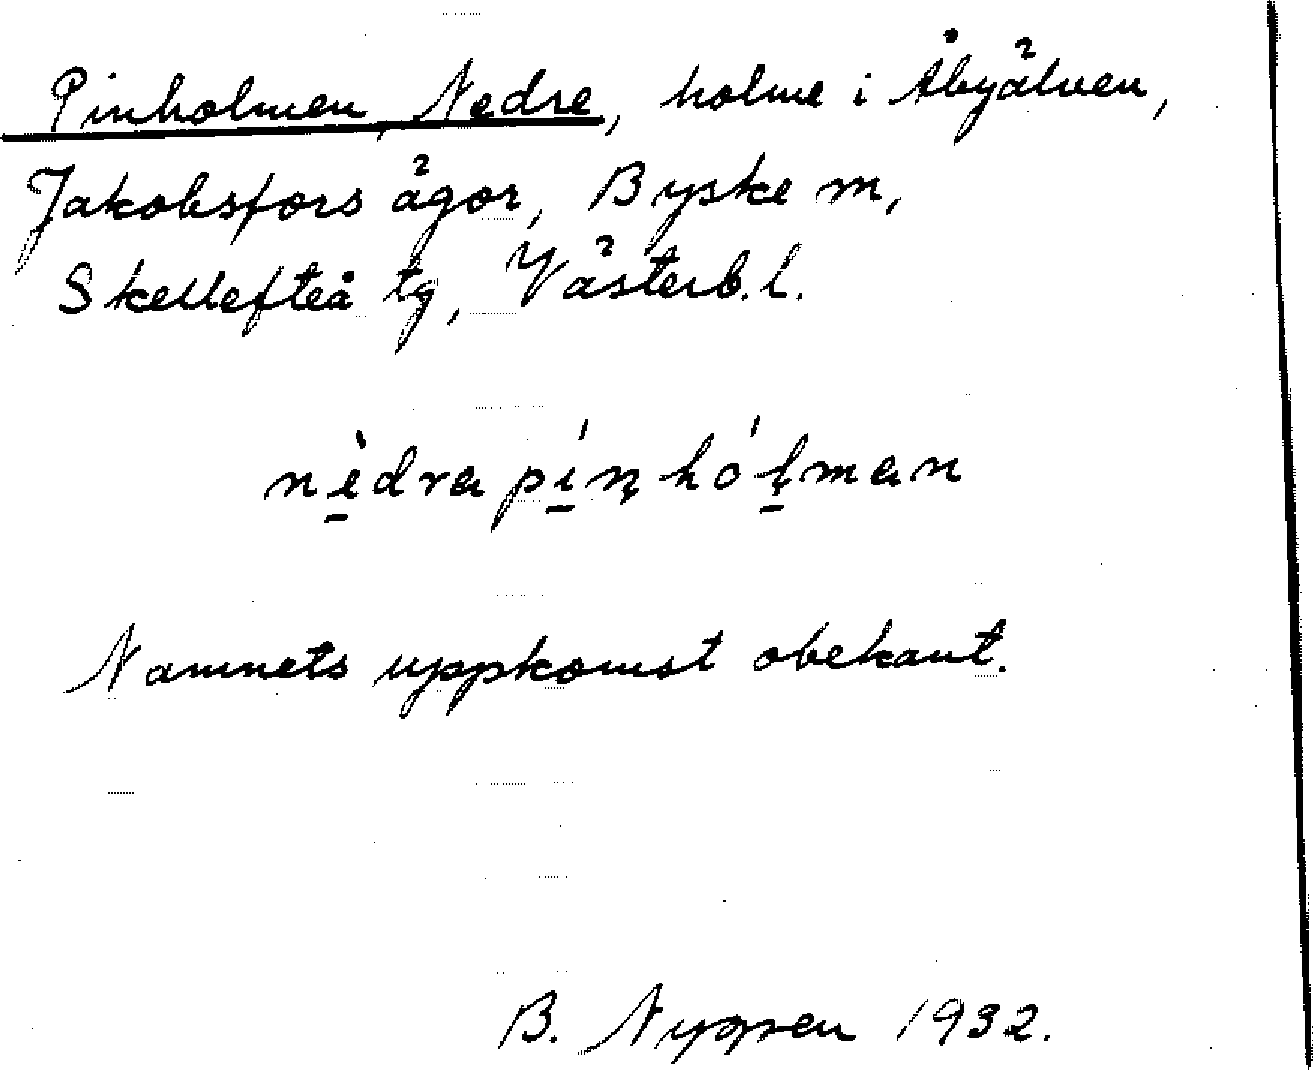 Pinholmen, Nedre, holme i Åbyälven,
Jakobsfors ägor, Byske sn,
Skellefteå tg, Västerb. l.
nèdra pínhólman
Namnets uppkomst obekant.
B. Nygren 1932.